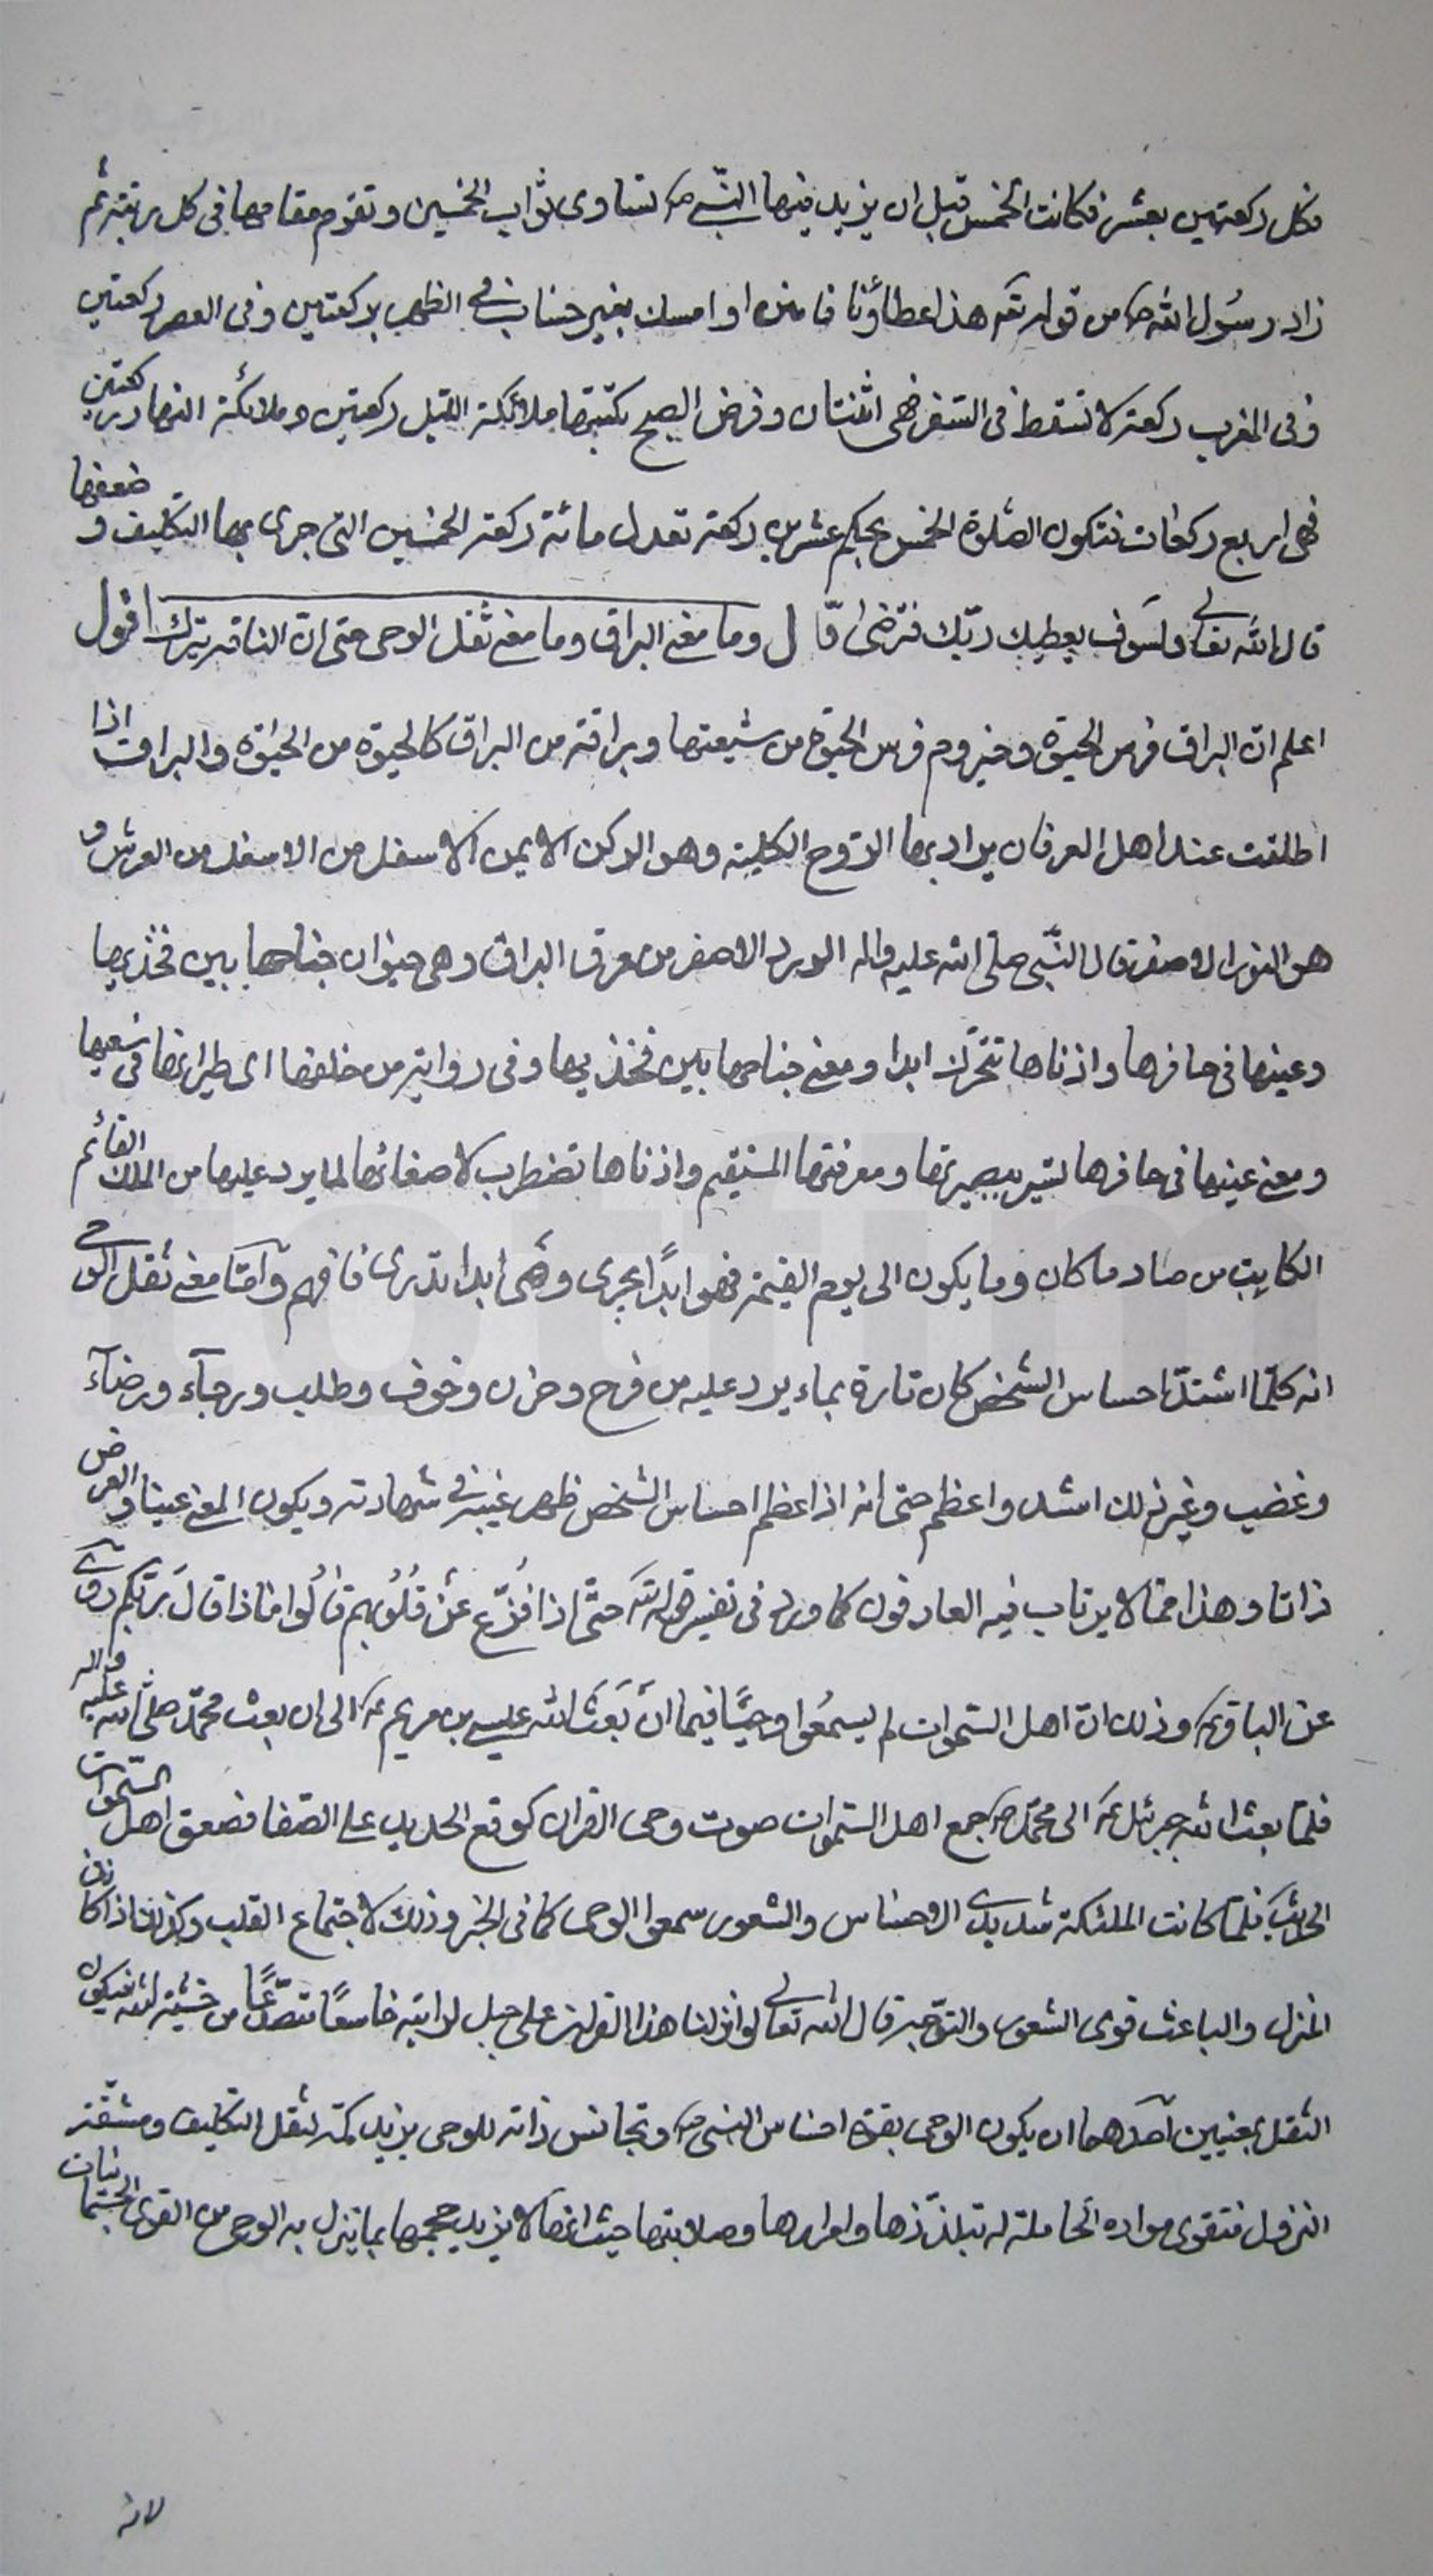 فكل ركعتين بعشر فكانت الخمس قبل ان يزيد فيها النبي ص تساوى ثواب الخمسين وتقوم مقامها فى كل رتبة ثم
زاد رسول الله ص من قوله تعـ هذا عطاؤنا فامنن او امسك بغير حساب فى الظهر ركعتين وفى العصر ركعتين
وفى المغرب ركعة لا تسقط فى السفر فهى اثنتان وفرض الصبح يكتبها ملائكة الليل ركعتين وملائكة النهار ركعتين
فهى اربع ركعات فتكون الصلوة الخمس بحكم عشرين ركعة تعدل مائة ركعة الخمسين التى جرى بها التكليف و ضعفها
قال الله تعالى ولسوف يعطيك ربك فترضى قال وما معنى البراق وما معنى ثقل الوحى حتى ان الناقة تبرك اقول
اعلم ان البراق فرس الحيوة وحيزوم فرس الحيوة من شيعتها وبراقته من البراق كالحيوة من الحيوة والبراق اذا
اطلقت عند اهل العرفان يراد بها الروح الكلية وهو الركن الايمن الاسفل من الاسفل من العرش و
هو النور الاصفر قال النبى صلى الله عليه واله الورد الاصفر من عرق البراق وهى حيوان جناحها بين فخذيها
وعينها فى حافرها واذناها تتحرك ابدا ومعنى جناحها بين فخذيها وفى رواية من خلفها اى طيرانها فى سعيها
ومعنى عينها فى حافرها تسير ببصيرتها ومعرفتها المستقيم واذناها تضطرب لاصغائها لما يرد عليها من الملك القائم
الكاتب من صاد ما كان وما يكون الى يوم القيمة فهو ابدًا يجرى وهى ابدا تدرى فافهم وامّا معنى ثقل الوحى
انه كلما اشتدّ احساس الشخص كان تارة بماء يرد عليه من فرح وحزن وخوف وطلب ورجآء ورضآء
وغضب وغير ذلك اشد واعظم حتى انه اذا عظم احساس الشخص ظهر غيبه فى شهادته ويكون المعنى عينا والعرض
ذاتا وهذا ممّا لا يرتاب فيه العارفون كما ورد فى تفسير قوله تعـ حتّى اذا فُزّع عَنْ قُلُوبهم قالُوا ماذا قالَ رَبّكم روى
عن الباقر ع وذلك انّ اهل السّموات لم يسمعُوا وحيًا فيما انَ بَعَثَ الله عيسى بن مريم ع الى ان بعث محمّد صلى الله عليه واله
فلمّا بعث الله جبرئيل ع الى محمّد ص سمع اهل السّموات صوت وحى القران كوقع الحديد على الصّفا فصعق اهل السّموات
الحديث فلمّا كانت الملئكة شديدى الاحساس والشعور سمعوا الوحى كما فى الخبر وذلك لاجتماع القلب وكذلك اذا كان
المنزل والباعث قوى الشعور والتوّجه قال الله تعالى لو انزلنا هذا القران على جبل لرايته خاشعًا متصدّعًا من خشية الله فيكون
الثقل بمعنيين احدهما ان يكون الوحى بقوة احساس النبى ص وتجانس ذاته للوحى يزيد كمّه لثقل التكليف ومشقّة
النزول فتقوى مواده الحاملة له بتلذّذها وصلابتها حيث انها لا يزيد حجمها بما ينزل به الوحى من القوى الجسمانيات
لانه